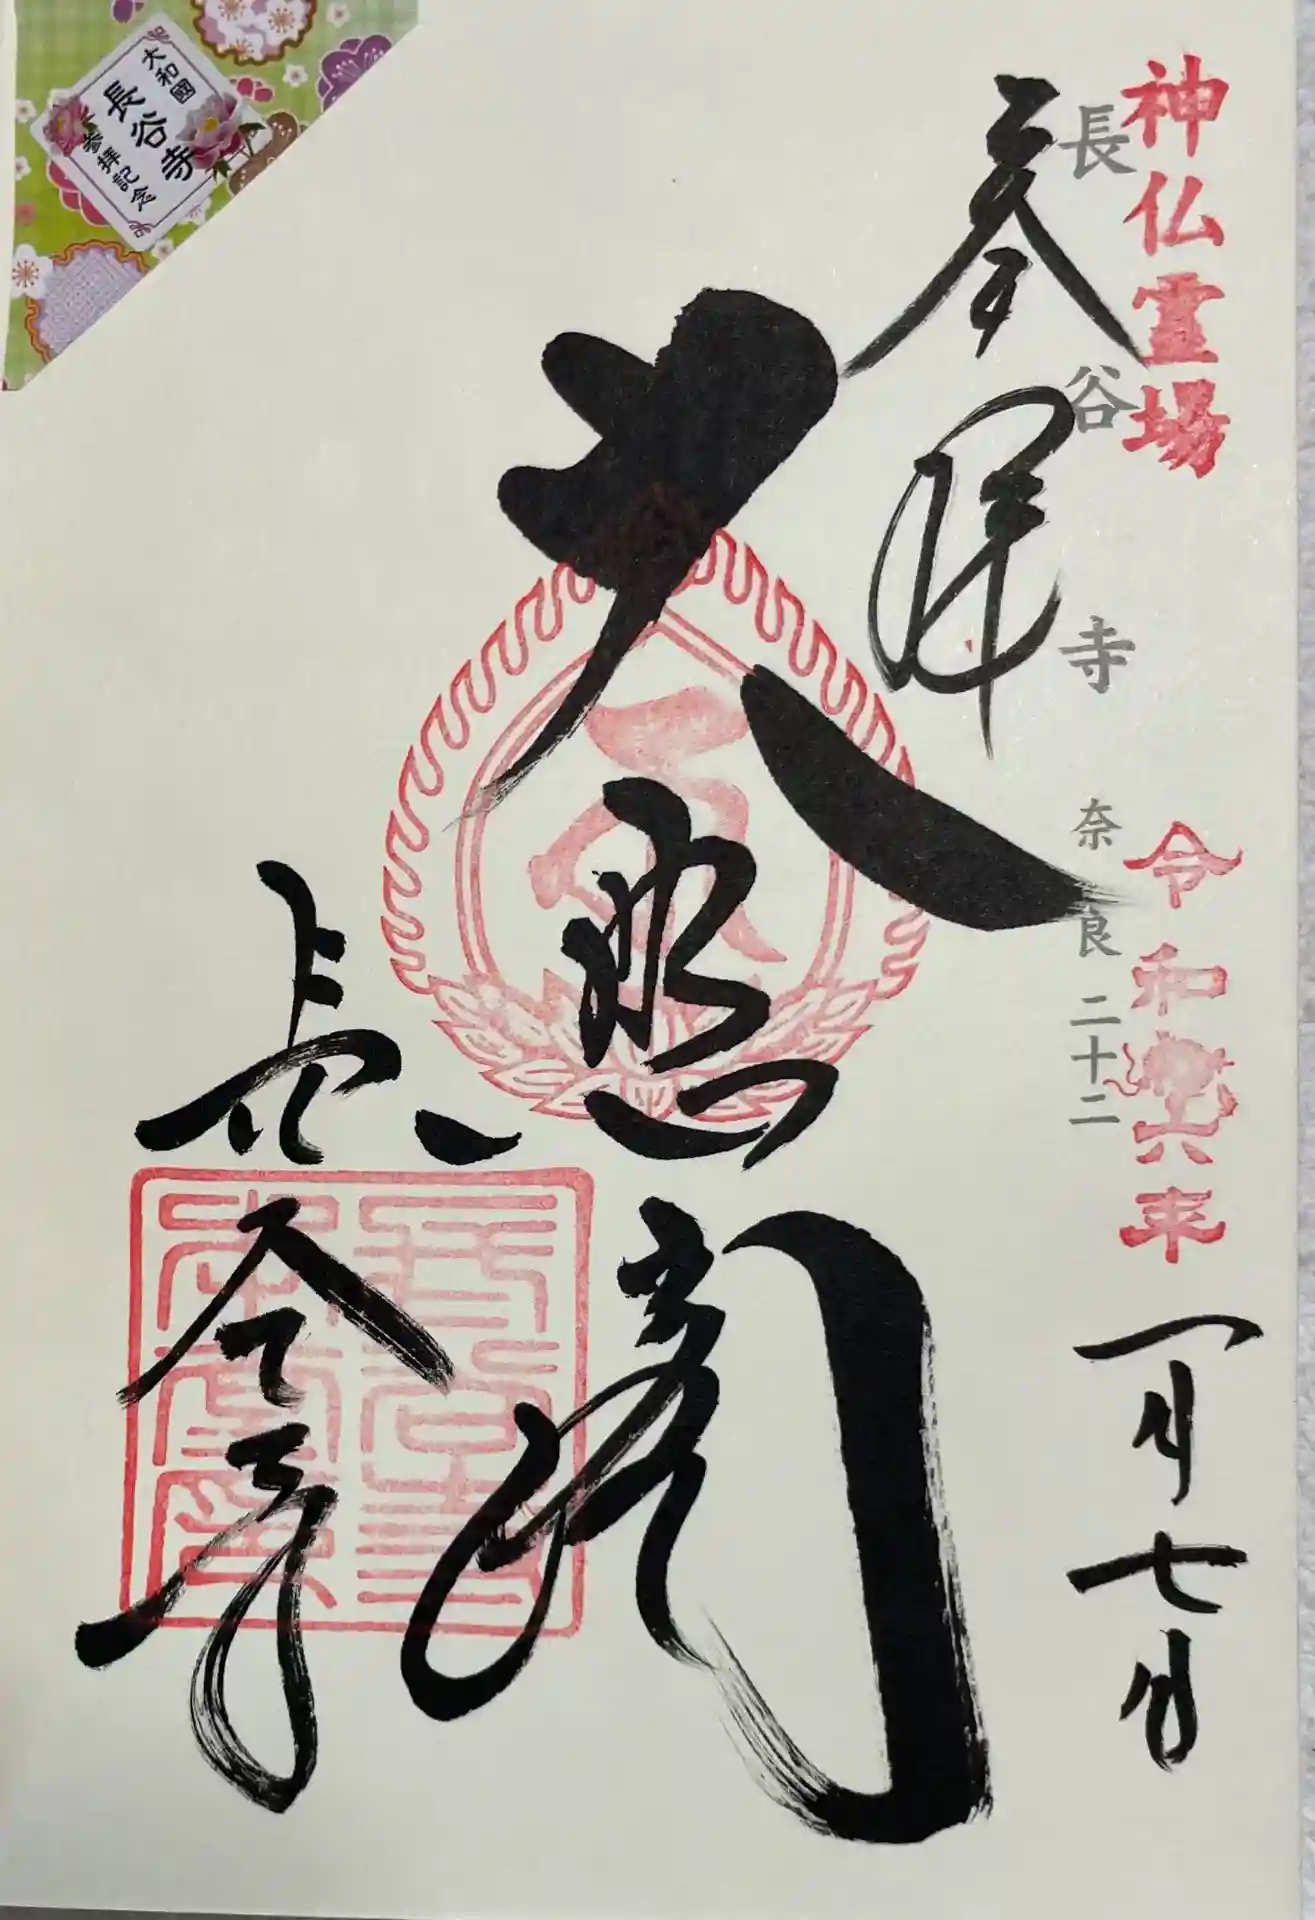 神仏霊場
令和六年
一月七日
長谷寺
奈良二十二
奉拝
大悲閣
長谷寺
大和國
長谷寺
参拝記念